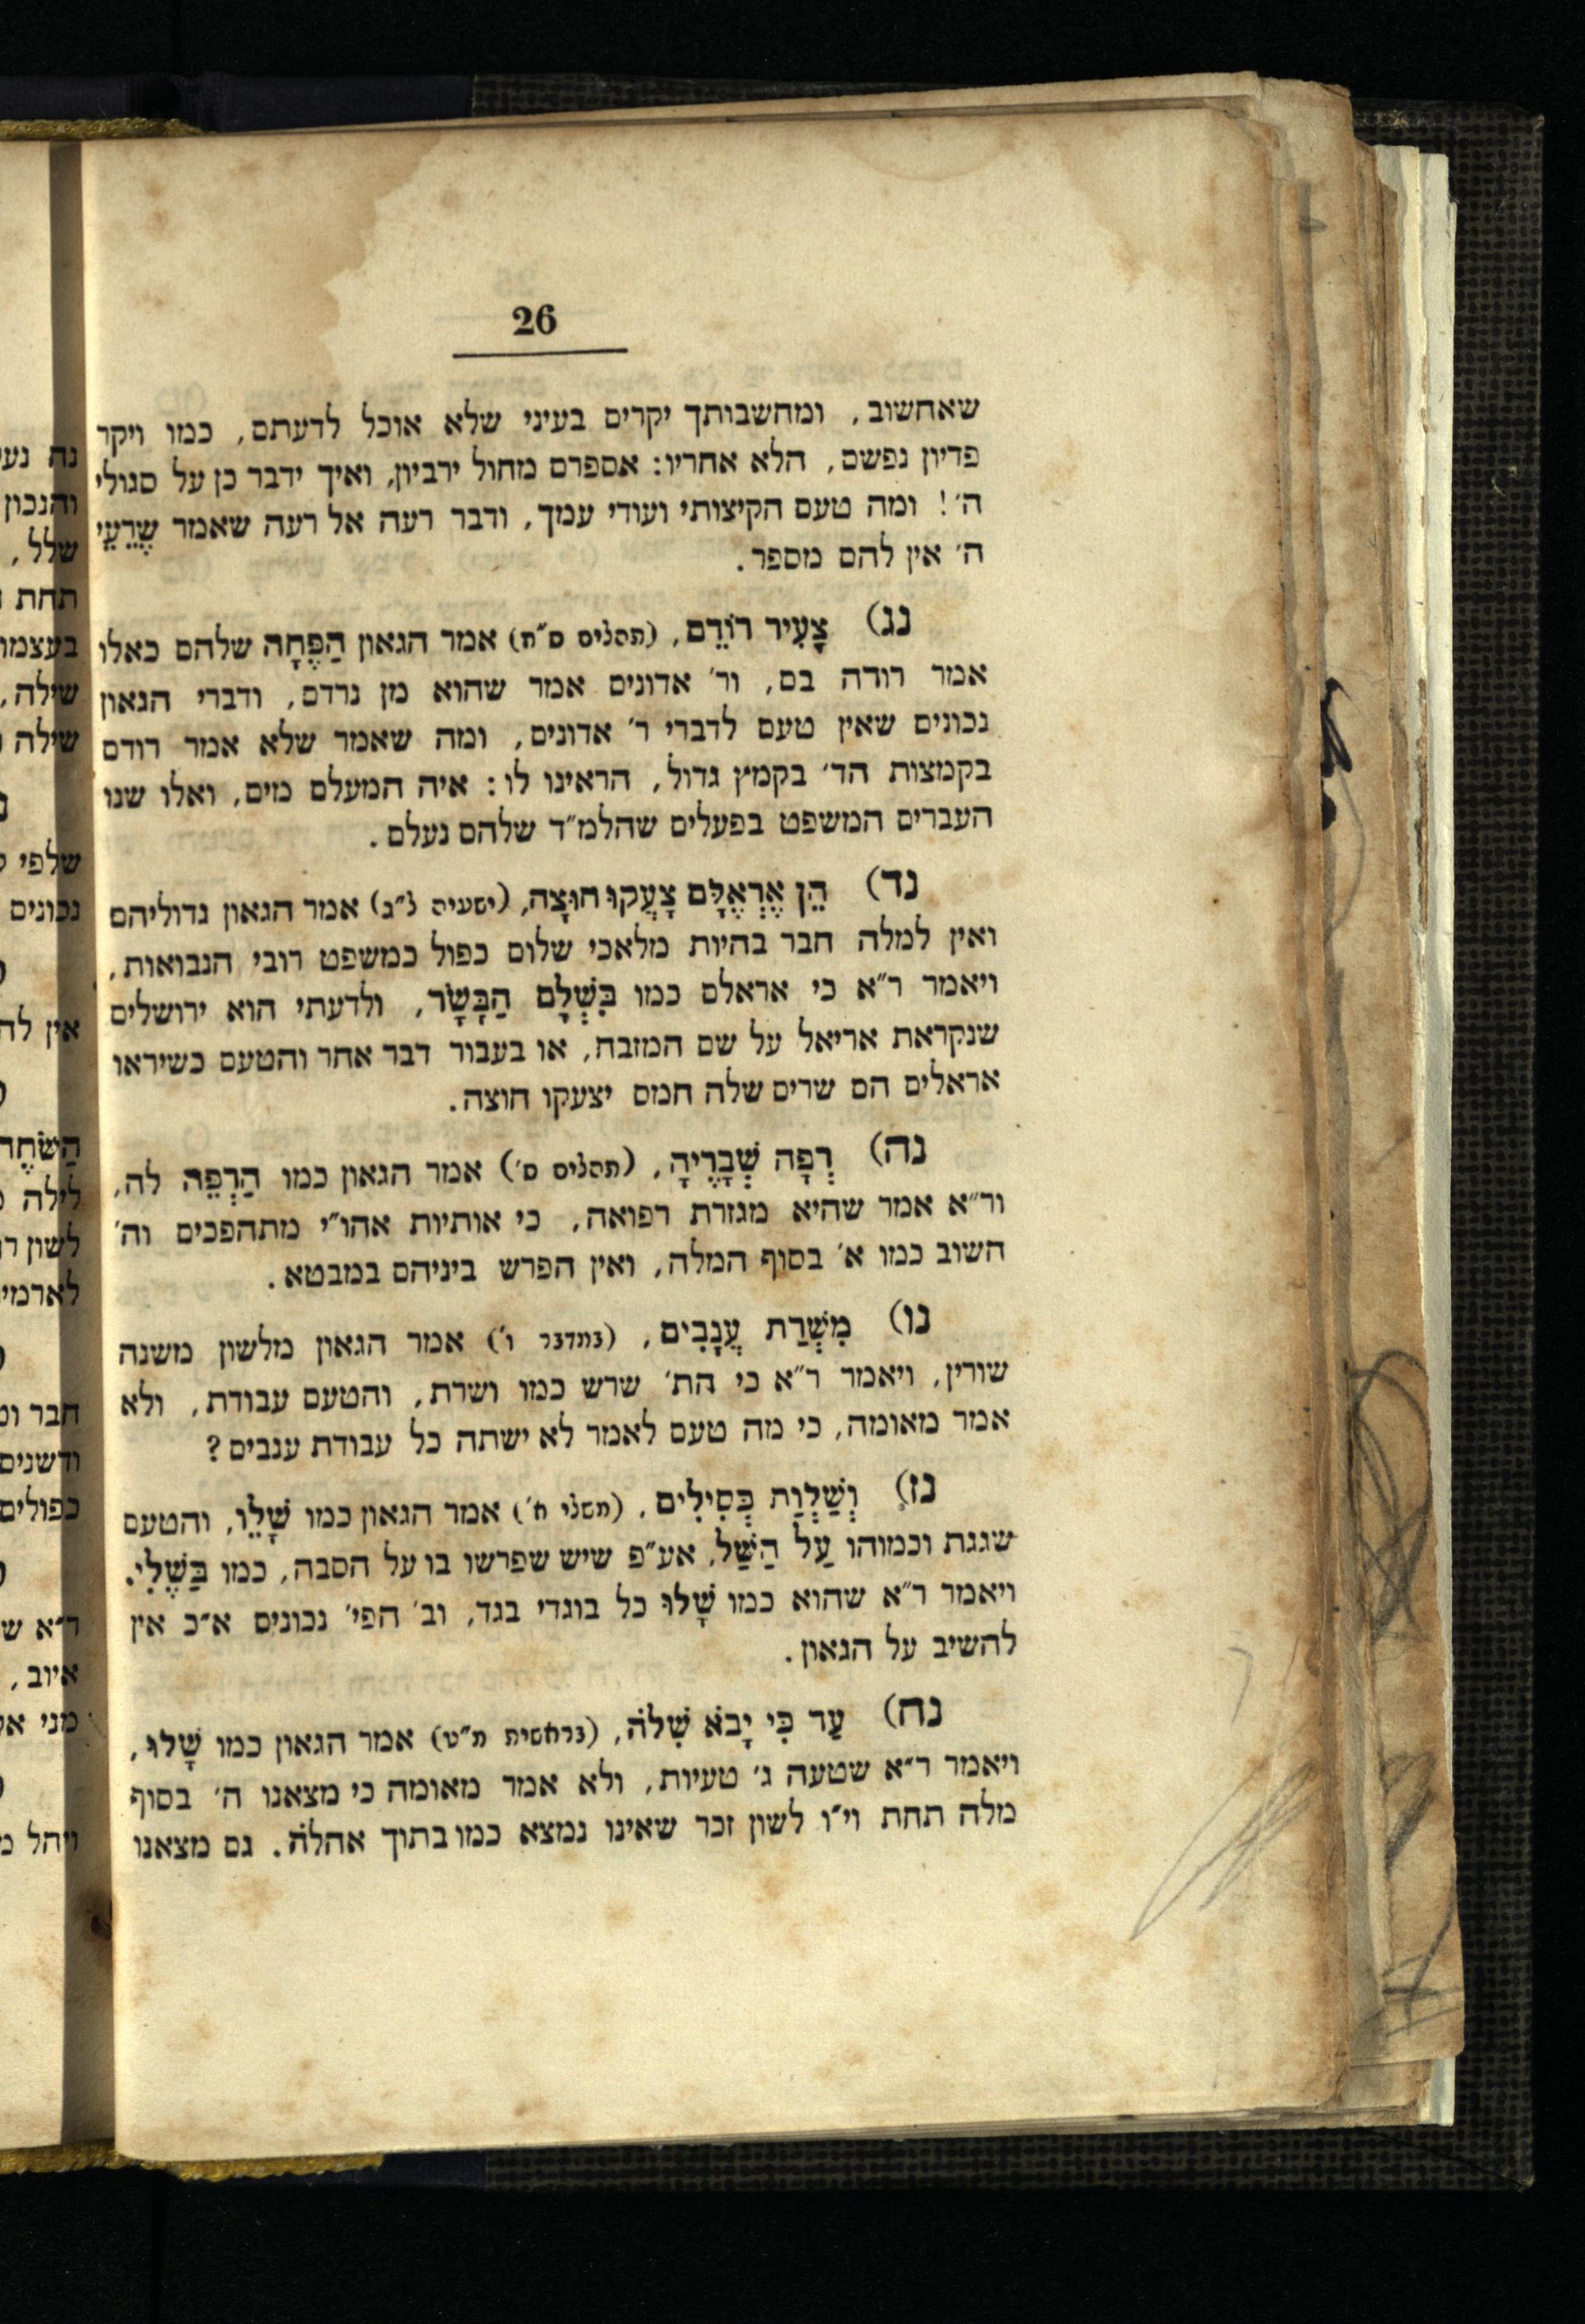 26
שאחשוב, ומחשבותך יקרים בעיני שלא אוכל לדעתם, כמו ויקר
פדיון נפשם, הלא אחריו: אספרם מחול ירביון, ואיך ידבר כן על סגולי
ה׳! ומה טעם הקיצותי ועודי עמך, ודבר רעה אל רעה שאמר שֶׁרֵעֵי
ה׳ אין להם מספר.
נג) צָעִיר רוֹדֵם, (תהלים ס״ח) אמר הגאון הַפֶּחָה שלהם כאלו
אמר רודה בם, ור׳ אדונים אמר שהוא מן נרדם, ודברי הגאון
נכונים שאין טעם לדברי ר׳ אדונים, ומה שאמר שלא אמר רודם
בקמצות הד׳ בקמץ גדול, הראינו לו: איה המעלם מים, ואלו שנו
העברים המשפט בפעלים שהלמ״ד שלהם נעלם.
נד) הֵן אֶרְאֶלָּם צָעֲקוּ חוּצָה, (ישעיה ל״ג) אמר הגאון גדוליהם
ואין למלה חבר בהיות מלאכי שלום כפול כמשפט רובי הנבואות,
ויאמר ר״א כי אראלם כמו בִּשְׁלָם הַבָּשָׂר, ולדעתי הוא ירושלים
שנקראת אריאל על שם המזבח, או בעבור דבר אחר והטעם כשיראו
אראלים הם שרים שלה חמס יצעקו חוצה.
נה) רְפָה שְׁבָרֶיהָ, (תהלים ס׳) אמר הגאון כמו הַרְפֵּה לה,
ור״א אמר שהיא מגזרת רפואה, כי אותיות אהו״י מתהפכים וה׳
חשוב כמו א׳ בסוף המלה, ואין הפרש ביניהם במבטא.
נו) מִשְׁרַת עֲנָבִים, (במדבר ו׳) אמר הגאון מלשון משנה
שורין, ויאמר ר״א כי הת׳ שרש כמו ושרת, והטעם עבודת, ולא
אמר מאומה, כי מה טעם לאמר לא ישתה כל עבודת ענבים?
נז) וְשַׁלְוַת כְּסִילִים, (משלי א׳) אמר הגאון כמו שָׁלֵו, והטעם
שגגת וכמוהו עַל הַשַּׁל, אע״פ שיש שפרשו בו על הסבה, כמו בַּשֶּׁלִי.
ויאמר ר״א שהוא כמו שָׁלוּ כל בוגדי בגד, וב׳ הפי׳ נכונים א״כ אין
להשיב על הגאון.
נח) עַד כִּי יָבֹא שִׁלֹה, (בראשית מ״ט) אמר הגאון כמו שֶׁלוֹ,
ויאמר ר״א שטעה ג׳ טעיות, ולא אמר מאומה כי מצאנו ה׳ בסוף
מלה תחת וי״ו לשון זכר שאינו נמצא כמו בתוך אהלה. גם מצאנו